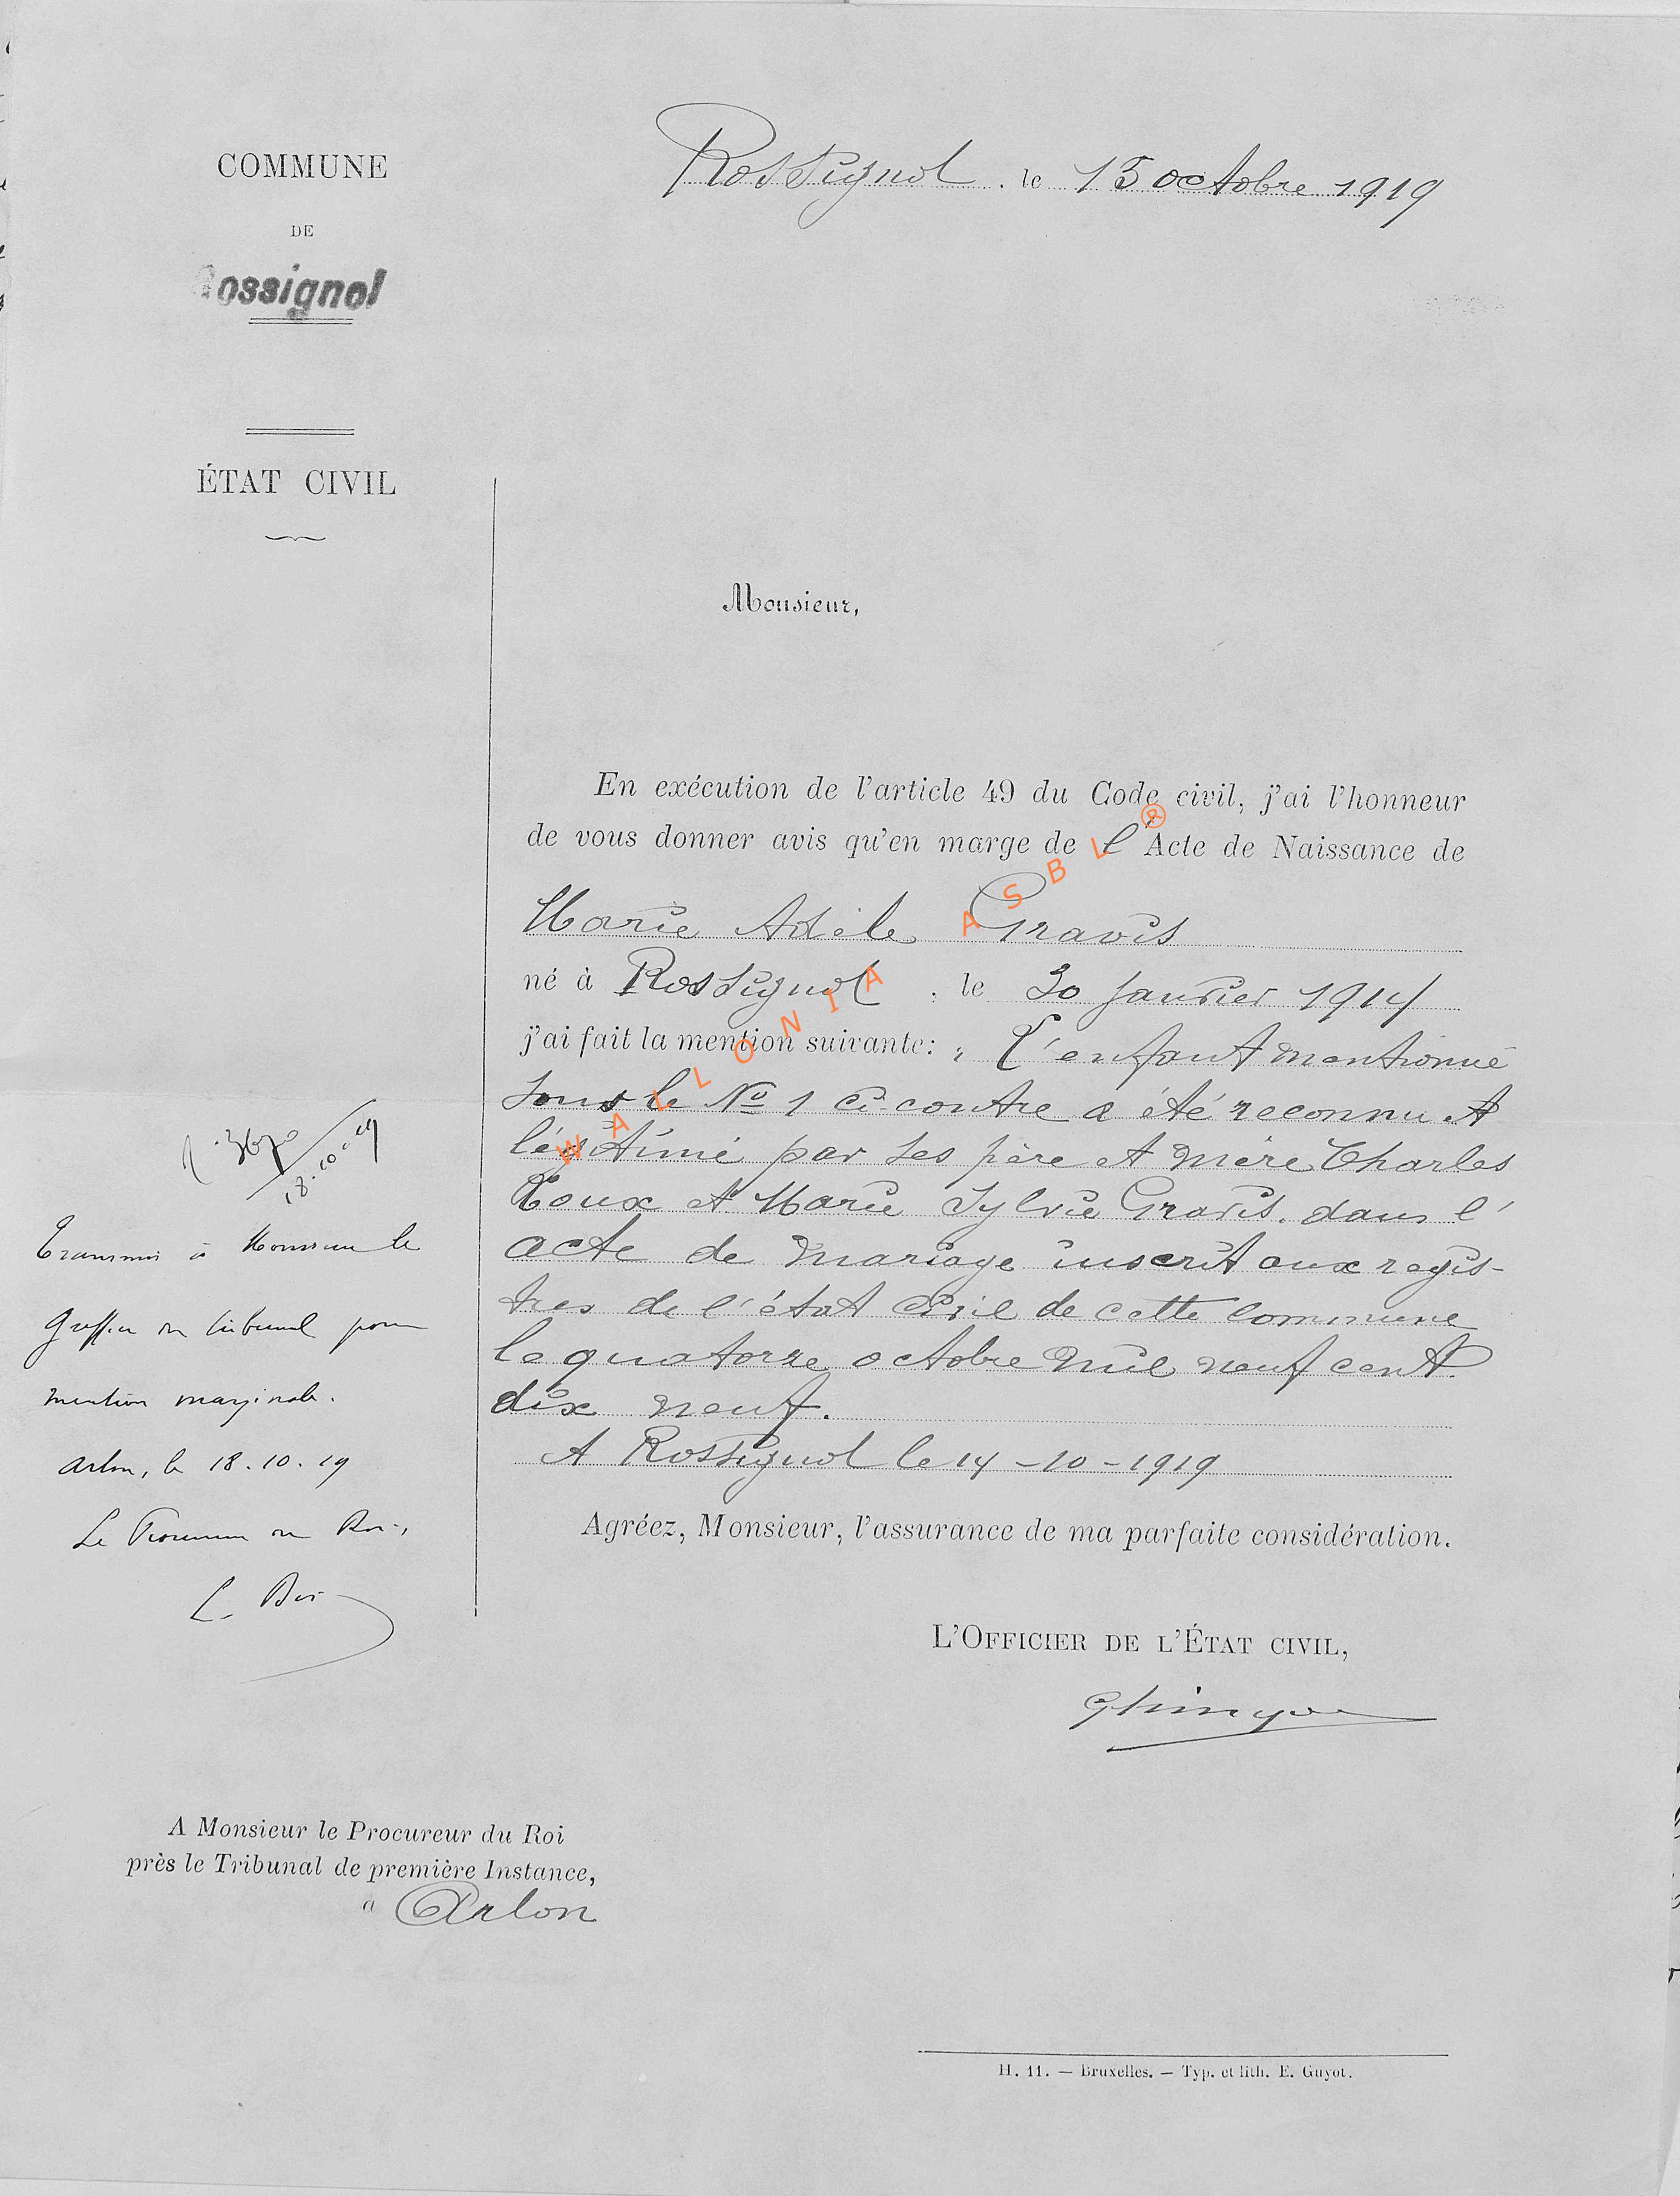 COMMUNE
DE
Rossignol
ÉTAT CIVIL
Rossignol, le 15 octobre 1919
Monsieur,
En exécution de l'article 49 du Code civil, j'ai l'honneur
de vous donner avis qu'en marge de l'Acte de Naissance de
Marie Adèle Gravis
né à Rossignol, le 30 Janvier 1914
j'ai fait la mention suivante: L'enfant mentionné
sous le No 1 ci-contre a été reconnu et
légitimé par ses père et mère Charles
et Marie Sylvie Gravis, dans l'
acte de mariage inscrit aux regis-
tres de l'état civil de cette commune
le quatorze octobre mil neuf cent
dix neuf.
A Rossignol le 14-10-1919
Agréez, Monsieur, l'assurance de ma parfaite considération.
L'OFFICIER DE L'ÉTAT CIVIL,
18-10-19
Transmis à Monsieur le
Greffier du tribunal pour
mention marginale.
Arlon, le 18.10.19
Le Procureur du Roi,
A Monsieur le Procureur du Roi
près le Tribunal de première Instance,
à Arlon
H. 11. — Bruxelles. — Typ. et lith. E. Guyot.
WALLONIA ASBL ®